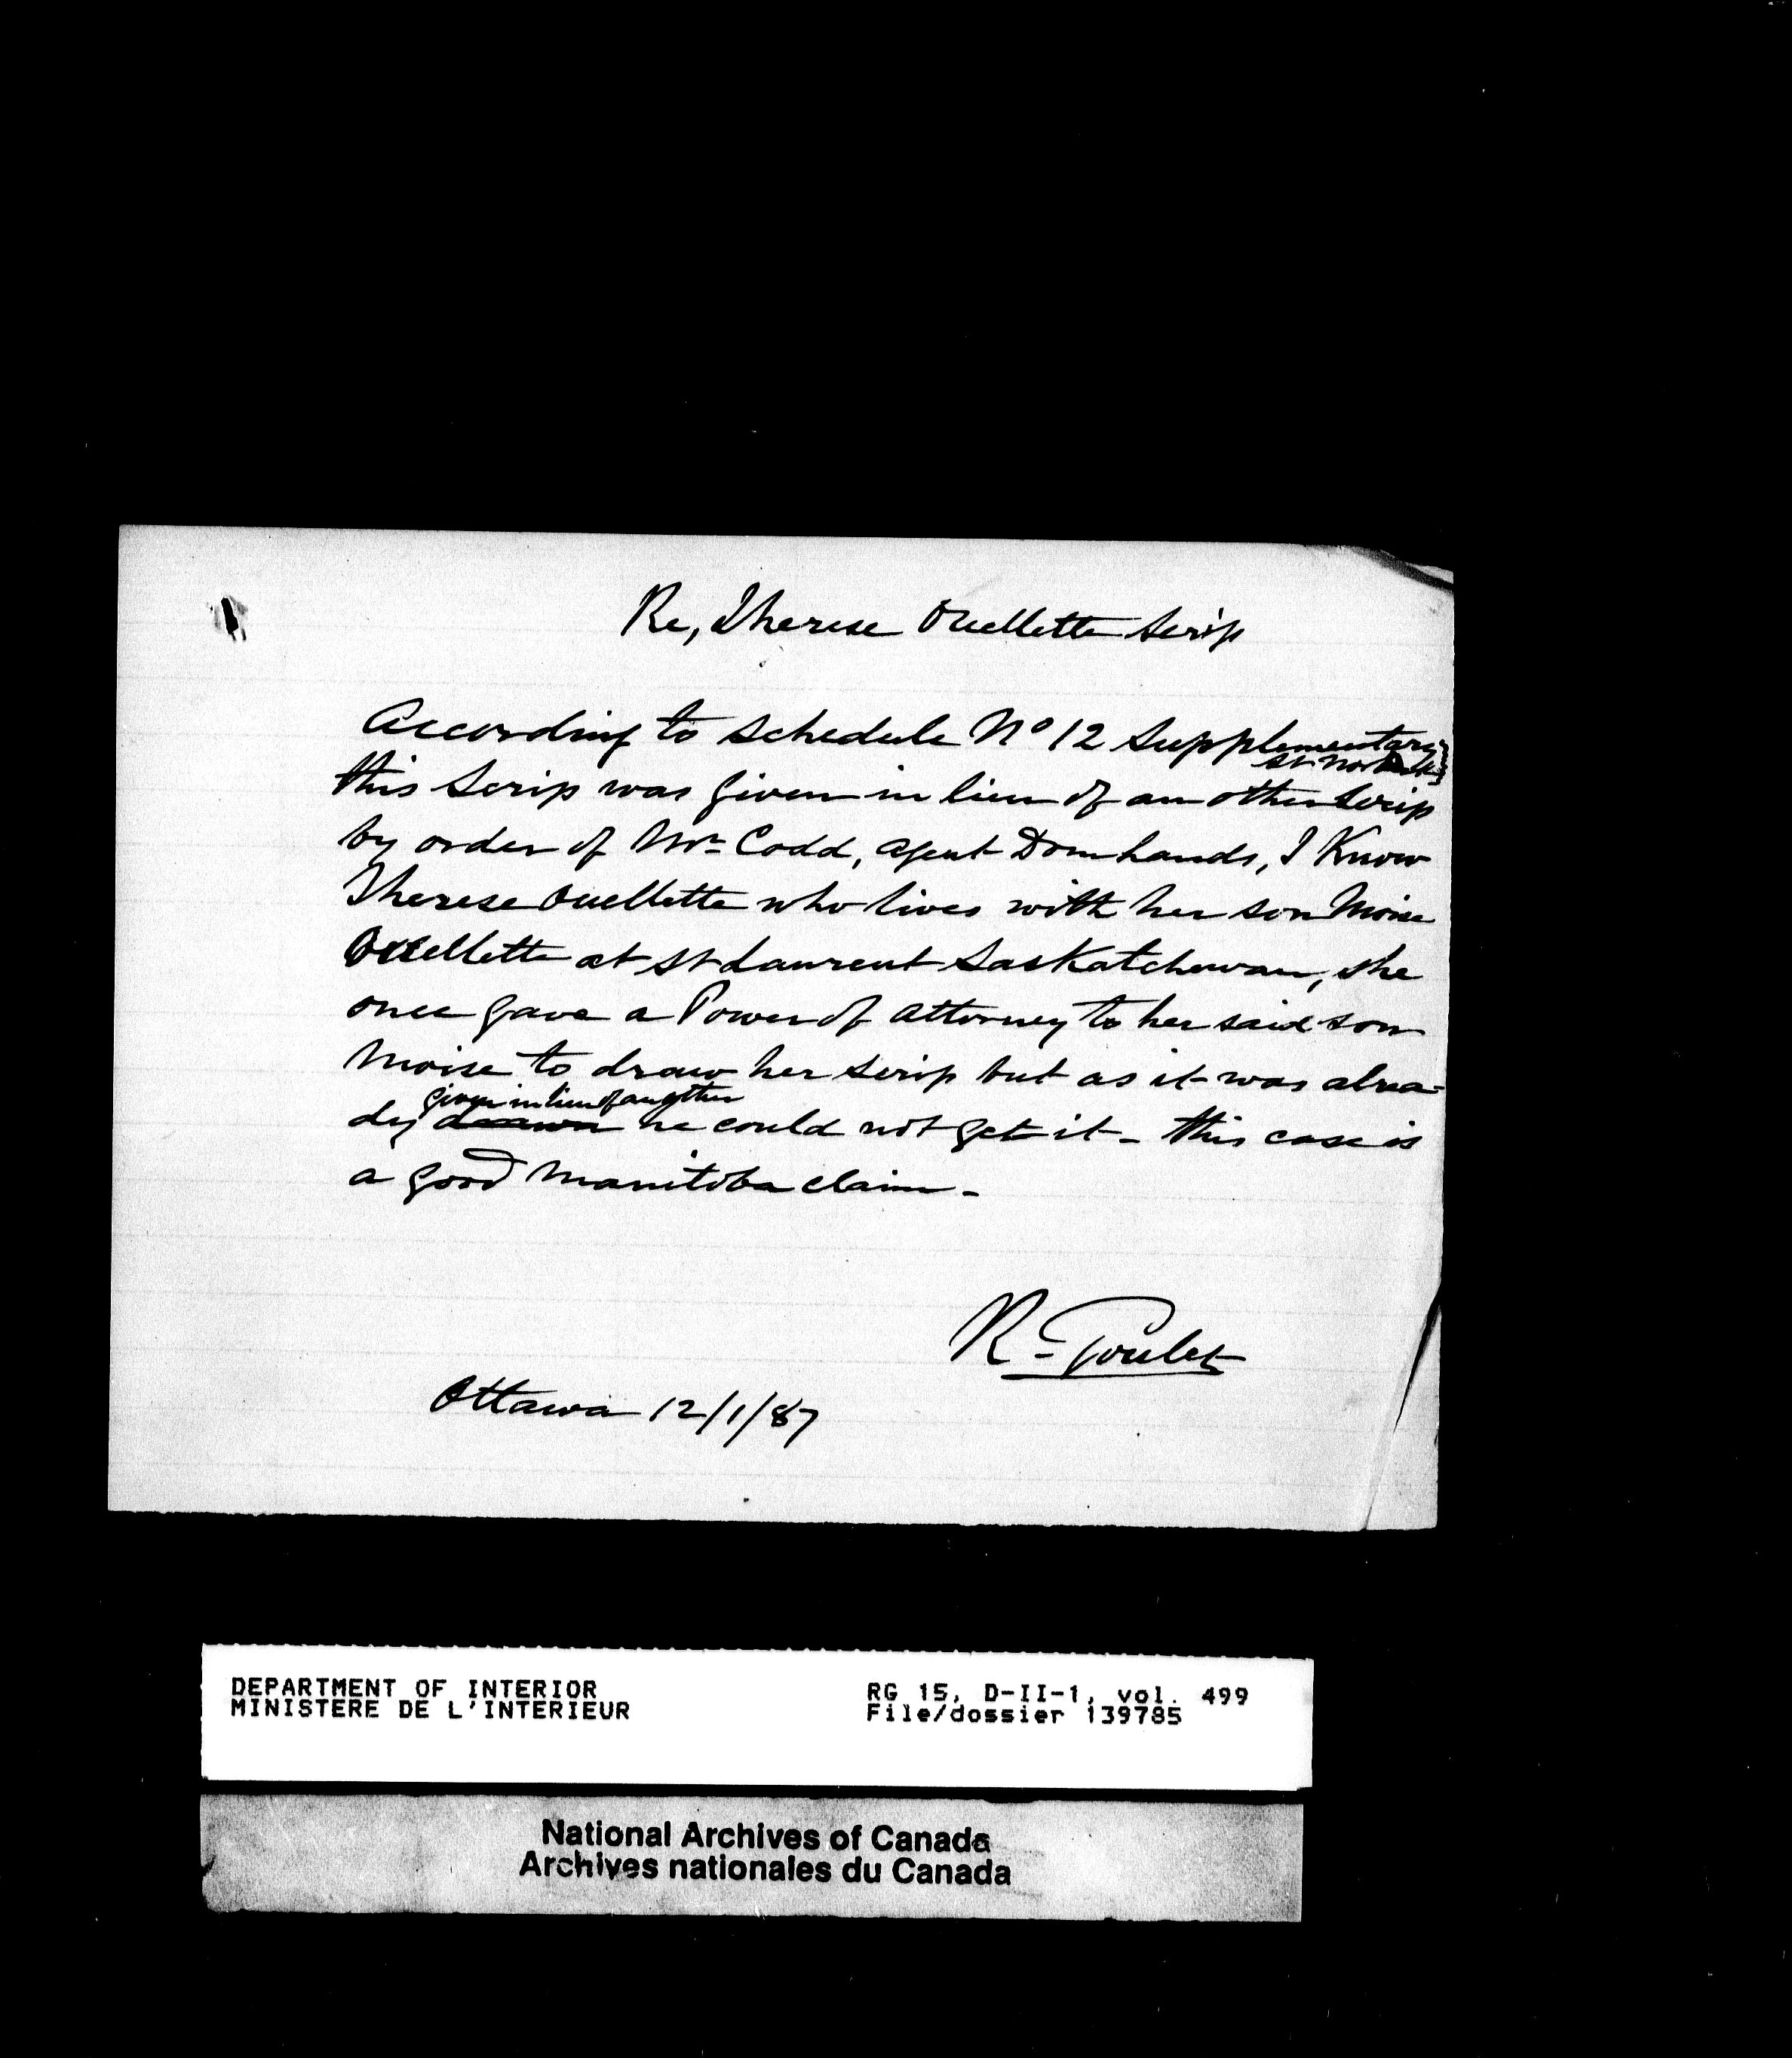 Re, Therese Ouellette Scrip
According to Schedule No 12 Supplementary
St Norbert
this Scrip was given in lieu of an other Scrip
by order of Mr Codd, agent Dom Lands, I Know
Therese Ouellette who lives with her son Moise
Ouellette at St Laurent Saskatchewan, she
once gave a Power of Attorney to her said son
Moise to draw her scrip but as it was alrea=
given in lieu of another
dy drawn he could not get it - this case is
a good Manitoba claim -
R - Goulet
Ottawa 12/1/87
DEPARTMENT OF INTERIOR RG 15, D-II-1, vol. 499
MINISTERE DE L'INTERIEUR File/dossier 139785
National Archives of Canada
Archives nationales du Canada